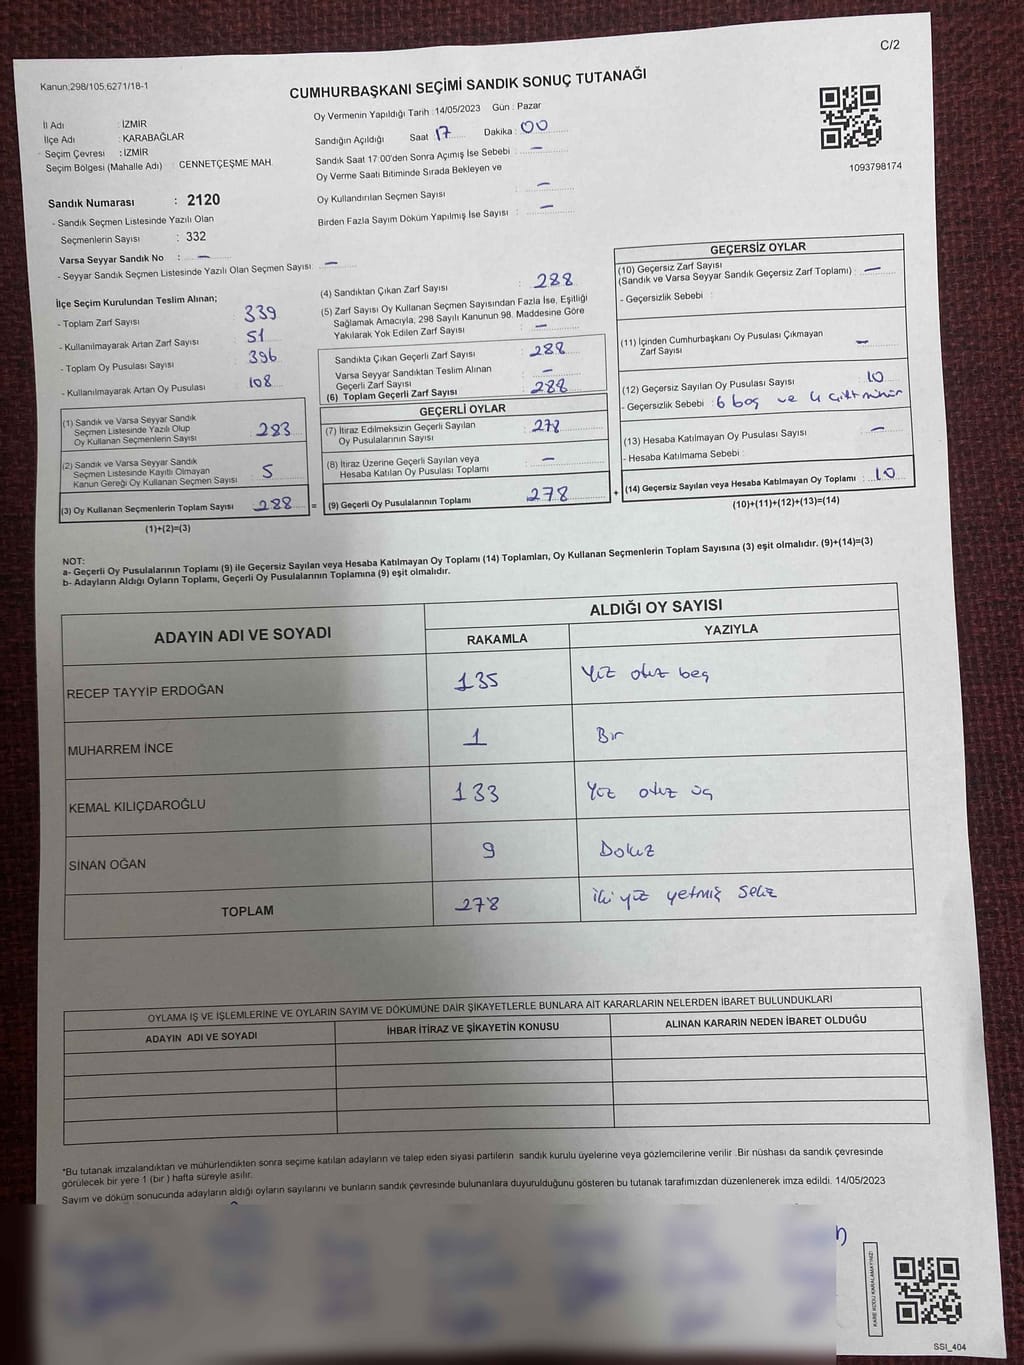 C/2
Kanun;298/105,6271/18-1
CUMHURBAŞKANI SEÇİMİ SANDIK SONUÇ TUTANAĞI
1093798174
İl Adı : İZMİR
İlçe Adı : KARABAĞLAR
Seçim Çevresi : İZMİR
Seçim Bölgesi (Mahalle Adı) : CENNETÇEŞME MAH.
Sandık Numarası : 2120
- Sandık Seçmen Listesinde Yazılı Olan
Seçmenlerin Sayısı : 332
Varsa Seyyar Sandık No : -
- Seyyar Sandık Seçmen Listesinde Yazılı Olan Seçmen Sayısı: -
Oy Vermenin Yapıldığı Tarih :14/05/2023 Gün : Pazar
Sandığın Açıldığı Saat 17 Dakika : 00
Sandık Saat 17:00'den Sonra Açımış İse Sebebi : -
Oy Verme Saati Bitiminde Sırada Bekleyen ve
Oy Kullandırılan Seçmen Sayısı : -
Birden Fazla Sayım Döküm Yapılmış İse Sayısı : -
İlçe Seçim Kurulundan Teslim Alınan;
- Toplam Zarf Sayısı 339
- Kullanılmayarak Artan Zarf Sayısı 51
- Toplam Oy Pusulası Sayısı 396
- Kullanılmayarak Artan Oy Pusulası 108
(1) Sandık ve Varsa Seyyar Sandık
Seçmen Listesinde Yazılı Olup
Oy Kullanan Seçmenlerin Sayısı 283
(2) Sandık ve Varsa Seyyar Sandık
Seçmen Listesinde Kayıtlı Olmayan
Kanun Gereği Oy Kullanan Seçmen Sayısı 5
(3) Oy Kullanan Seçmenlerin Toplam Sayısı 288 =
(1)+(2)=(3)
(4) Sandıktan Çıkan Zarf Sayısı : 288
(5) Zarf Sayısı Oy Kullanan Seçmen Sayısından Fazla İse, Eşitliği
Sağlamak Amacıyla, 298 Sayılı Kanunun 98. Maddesine Göre
Yakılarak Yok Edilen Zarf Sayısı : -
Sandıkta Çıkan Geçerli Zarf Sayısı : 288
Varsa Seyyar Sandıktan Teslim Alınan
Geçerli Zarf Sayısı : -
(6) Toplam Geçerli Zarf Sayısı : 288
GEÇERLİ OYLAR
(7) İtiraz Edilmeksizin Geçerli Sayılan
Oy Pusulalarının Sayısı : 278
(8) İtiraz Üzerine Geçerli Sayılan veya
Hesaba Katılan Oy Pusulası Toplamı : -
(9) Geçerli Oy Pusulalarının Toplamı : 278 +
GEÇERSİZ OYLAR
(10) Geçersiz Zarf Sayısı
(Sandık ve Varsa Seyyar Sandık Geçersiz Zarf Toplamı) : -
- Geçersizlik Sebebi :
(11) İçinden Cumhurbaşkanı Oy Pusulası Çıkmayan
Zarf Sayısı : -
(12) Geçersiz Sayılan Oy Pusulası Sayısı : 10
- Geçersizlik Sebebi : 6 boş ve 4 çift mühür
(13) Hesaba Katılmayan Oy Pusulası Sayısı : -
- Hesaba Katılmama Sebebi :
(14) Geçersiz Sayılan veya Hesaba Katılmayan Oy Toplamı : 10
(10)+(11)+(12)+(13)=(14)
NOT:
a- Geçerli Oy Pusulalarının Toplamı (9) ile Geçersiz Sayılan veya Hesaba Katılmayan Oy Toplamı (14) Toplamları, Oy Kullanan Seçmenlerin Toplam Sayısına (3) eşit olmalıdır. (9)+(14)=(3)
b- Adayların Aldığı Oyların Toplamı, Geçerli Oy Pusulalarının Toplamına (9) eşit olmalıdır.
ADAYIN ADI VE SOYADI
ALDIĞI OY SAYISI
RAKAMLA YAZIYLA
RECEP TAYYİP ERDOĞAN 135 Yüz otuz beş
MUHARREM İNCE 1 Bir
KEMAL KILIÇDAROĞLU 133 Yüz otuz üç
SİNAN OĞAN 9 Dokuz
TOPLAM 278 iki yüz yetmiş sekiz
OYLAMA İŞ VE İŞLEMLERİNE VE OYLARIN SAYIM VE DÖKÜMÜNE DAİR ŞİKAYETLERLE BUNLARA AİT KARARLARIN NELERDEN İBARET BULUNDUKLARI
ADAYIN ADI VE SOYADI İHBAR İTİRAZ VE ŞİKAYETİN KONUSU ALINAN KARARIN NEDEN İBARET OLDUĞU
*Bu tutanak imzalandıktan ve mühürlendikten sonra seçime katılan adayların ve talep eden siyasi partilerin sandık kurulu üyelerine veya gözlemcilerine verilir .Bir nüshası da sandık çevresinde
görülecek bir yere 1 (bir ) hafta süreyle asılır.
Sayım ve döküm sonucunda adayların aldığı oyların sayılarını ve bunların sandık çevresinde bulunanlara duyurulduğunu gösteren bu tutanak tarafımızdan düzenlenerek imza edildi. 14/05/2023
KARE KODU KARALAMAYINIZ!
SSI_404